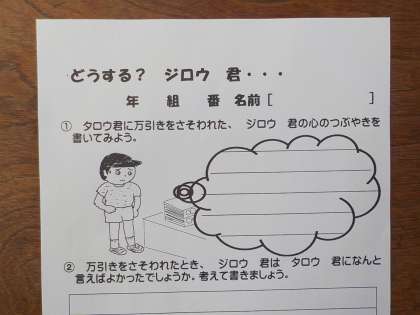 どうする? ジロウ 君・・・
年 組 番 名前[ ]
① タロウ君に万引きをさそわれた、 ジロウ 君の心のつぶやきを
書いてみよう。
② 万引きをさそわれたとき、 ジロウ 君は タロウ 君になんと
言えばよかったでしょうか。考えて書きましょう。